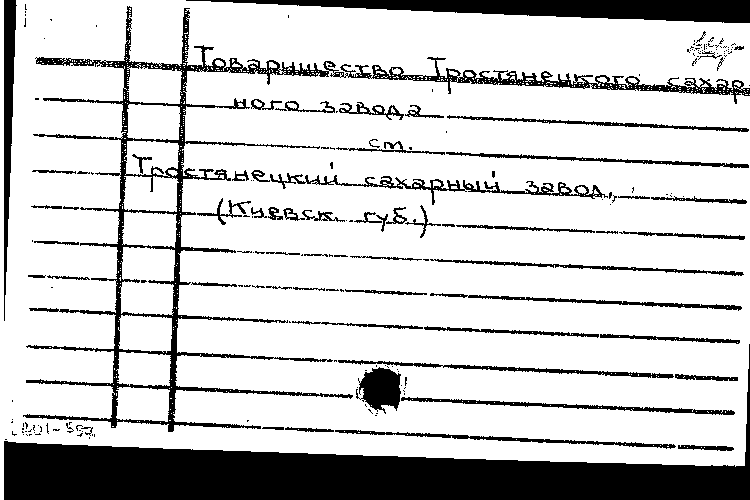 Товарищество Тростянецкого сахар
ного завода
ст.
Тростянецкий сахарный завод,
(Киевск. губ.)